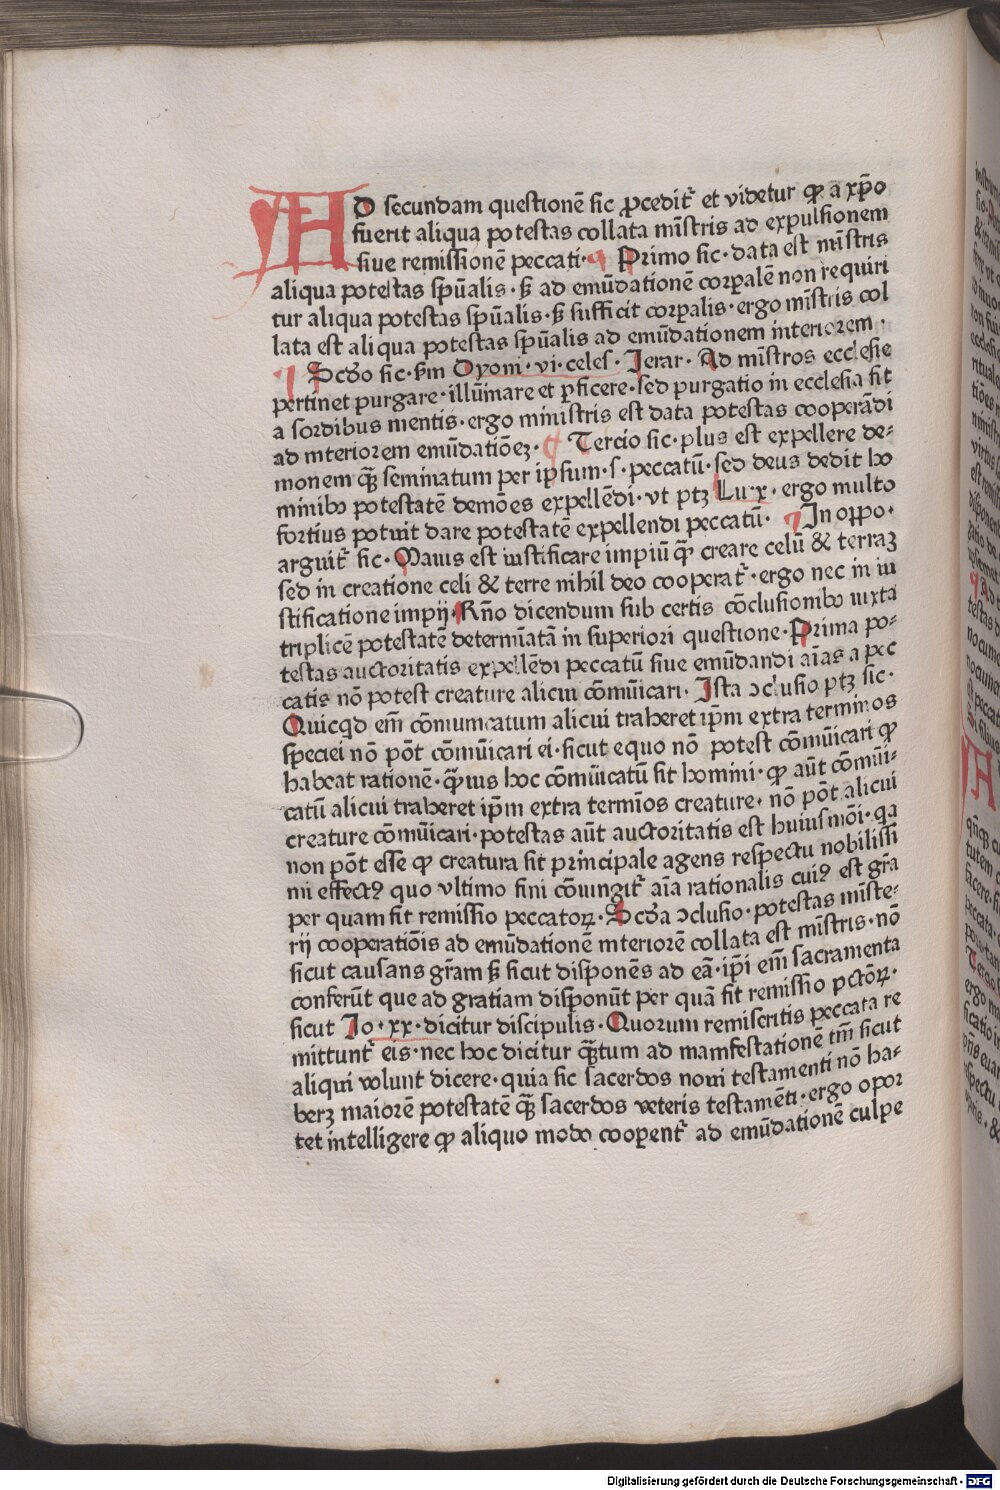 AD secundam questionē sic ꝓcedit᷑ et videtur ꝙ a xp̄o
fuerit aliqua potestas collata mīstris ad expulsionem
siue remissionē peccati· Primo sic· data est mīstris
aliqua potestas spūalis· sꝫ ad emūdationē corꝑalē non requiri
tur aliqua potestas spūalis· sꝫ sufficit corꝑalis· ergo mīstris col
lata est aliqua potestas spūalis ad emūdationem interiorem·
Scd̄o sic· ẜm Dyoni· vi· celes· Ierar· Ad mīstros ecclesie
pertinet purgare· illūinare et ꝑficere· sed purgatio in ecclesia fit
a sordibus mentis· ergo ministris est data potestas cooperādi
ad interiorem emūdatiōeꝫ· Tercio sic· plus est expellere de⸗
monem qꝫ̄ seminatum per ipsum· s· peccatū· sed deus dedit ho
minibꝰ potestatē demōes expellēdi· vt ptꝫ Lu· x· ergo multo
fortius potuit dare potestatē expellendi peccatū· In oppo·
arguit᷑ sic· Maius est iustificare impiū qꝫ̄ creare celū & terraꝫ
sed in creatione celi & terre nihil deo cooperat᷑· ergo nec in iu
stificatione impij· Rn̄o dicendum sub certis cōclusionibꝰ iuxta
triplicē potestatē determīatā in superiori questione· Prima po⸗
testas auctoritatis expellēdi peccatū siue emūdandi aīas a pec
catis nō potest creature alicui cōmūicari· Ista ↄclusio ptꝫ sic·
Quicqd em̄ cōmunicatum alicui traheret ip̄m extra terminos
speciei nō pōt cōmūicari ei· sicut equo nō potest cōmūicari ꝙ
habeat rationē· qꝫ̄uis hoc cōmūicatū sit homini· ꝙ aūt cōmūi⸗
catū alicui traheret ip̄m extra termīos creature· nō pōt alicui
creature cōmūicari· potestas aūt auctoritatis est huiusmōi· qa
non pōt esse ꝙ creatura sit principale agens respectu nobilissi
mi effectꝰ quo vltimo fini cōiungit᷑ aīa rationalis cuiꝰ est gr̄a
per quam fit remissio peccatoꝝ· Scd̄a ↄclusio· potestas mīste⸗
rij cooperatiōis ad emūdationē interiorē collata est mīstris· nō
sicut causans gr̄am sꝫ sicut disponēs ad eā· ip̄i em̄ sacramenta
conferūt que ad gratiam disponūt per quā fit remissio pctōꝝ·
sicut Io· xx· dicitur discipulis· Quorum remiseritis peccata re
mittunt᷑ eis· nec hoc dicitur qꝫ̄tum ad manifestationē tm̄ sicut
aliqui volunt dicere· quia sic sacerdos noui testamenti nō ha⸗
berꝫ maiorē potestatē qꝫ̄ sacerdos veteris testamēti· ergo opor
tet intelligere ꝙ aliquo modo cooꝑent᷑ ad emūdationē culpe
Digitalisierung gefördert durch die Deutsche Forschungsgemeinschaft - DFG